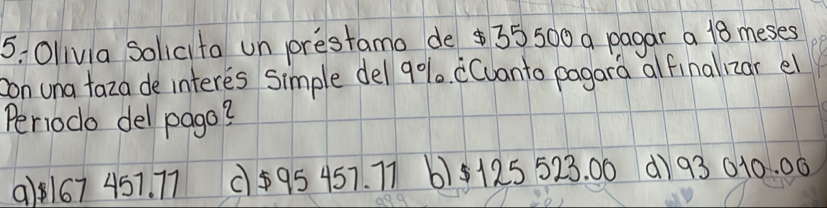 5.- Olivia Solicita un préstamo de $35 500 a pagar a 18 meses
con una taza de interés Simple del 9%. ¿Cuanto pagará al finalizar el
Periodo del pago?
a) $167 457.77 c) $95 457.77 b) $125 523.00 d) 93 010.00